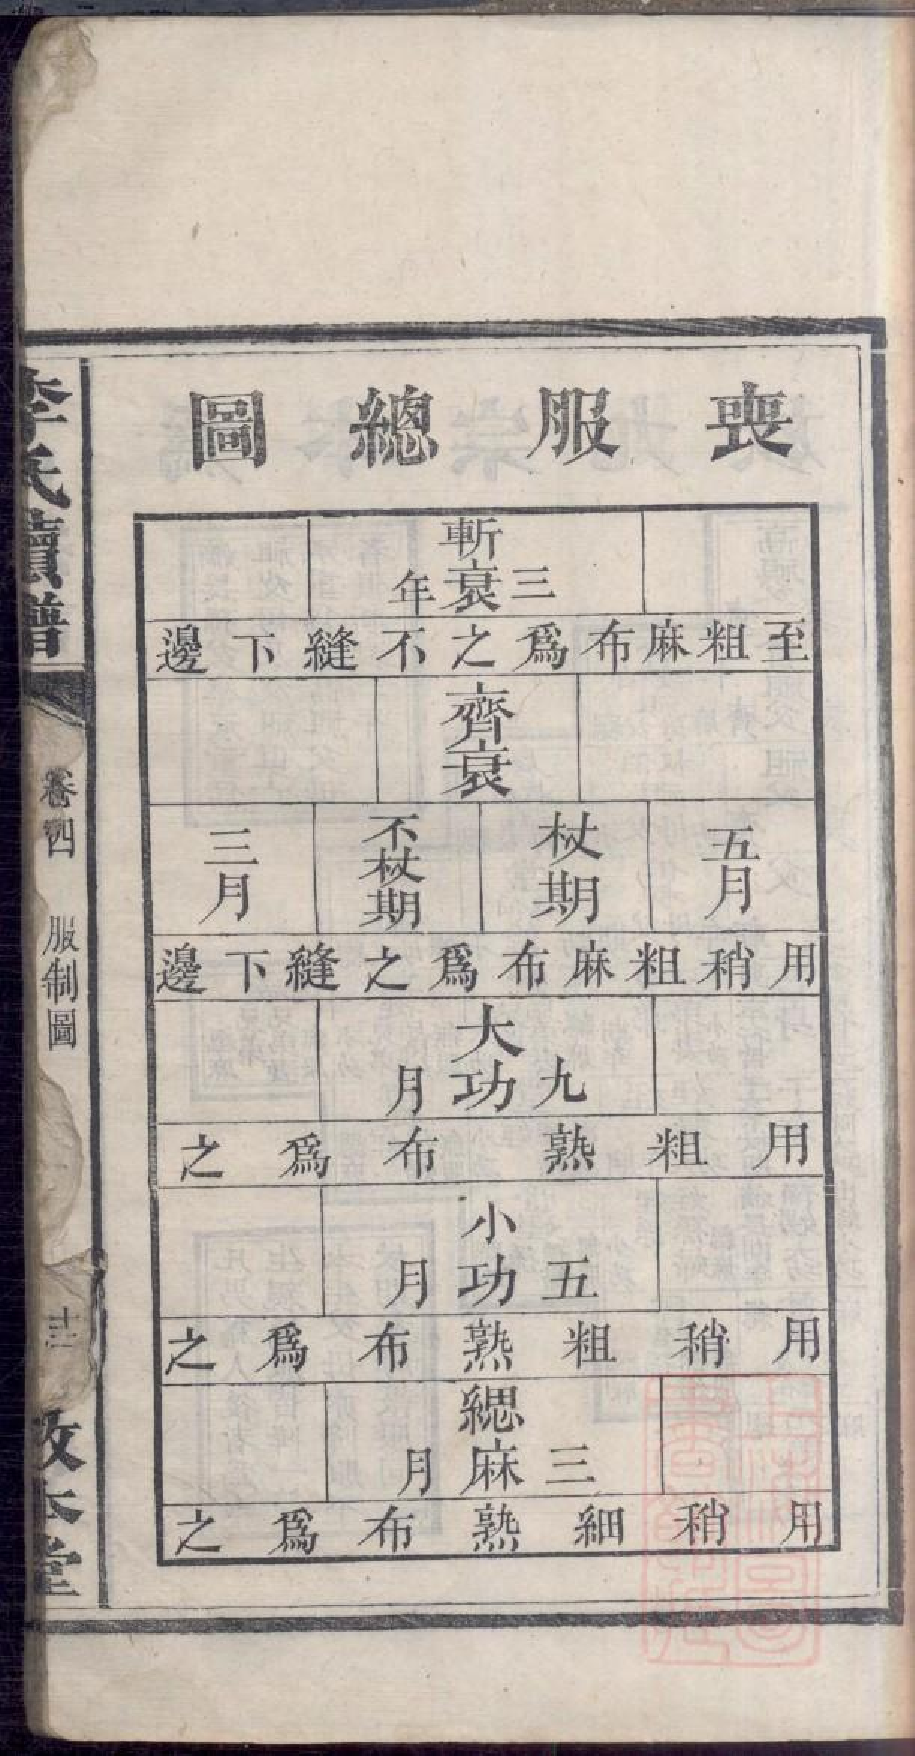 喪服總圖
斬衰三年
至粗麻布爲之不縫下邊
齊衰
五月
杖期
不杖期
三月
用稍粗麻布爲之縫下邊
大功九月
用粗熟布爲之
小功五月
用稍粗熟布爲之
緦麻三月
用稍細熟布爲之
李氏續譜
卷四 服制圖
敦本堂